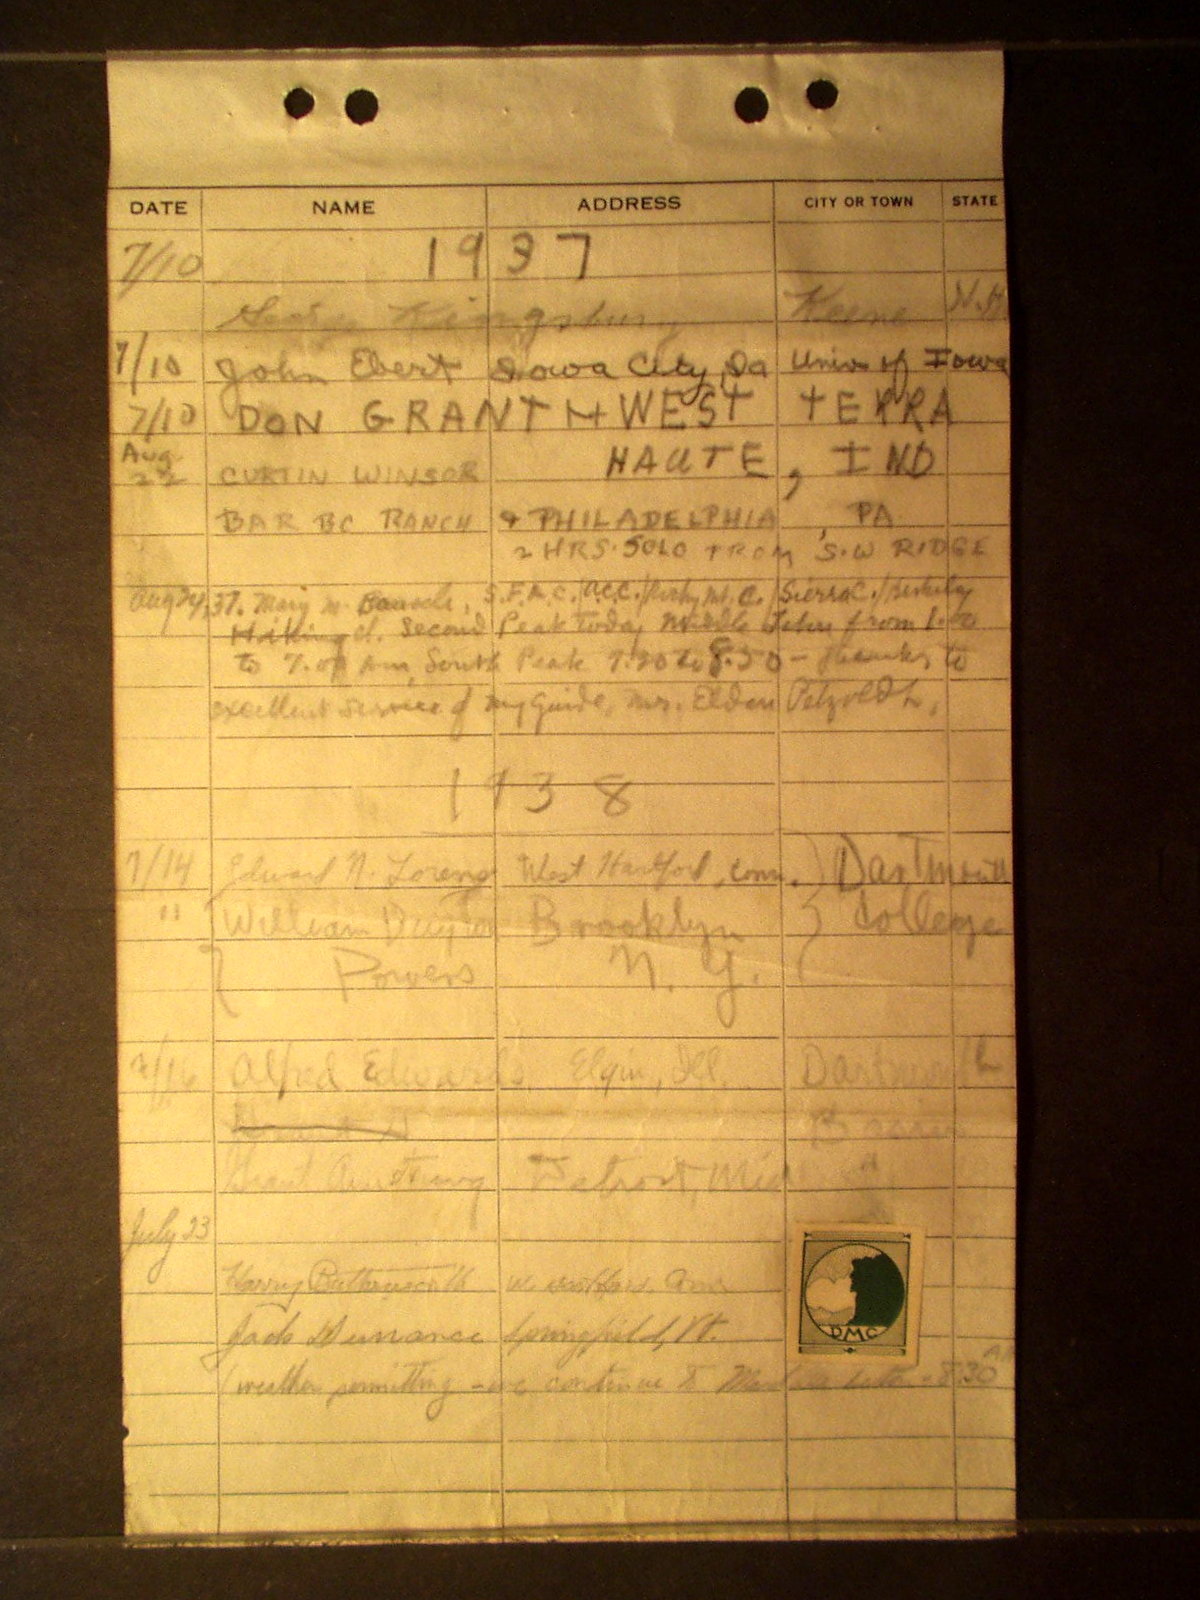 DATE NAME ADDRESS CITY OR TOWN STATE
7/10 1937
Kingsbury Keene N.H
7/10 John Ebert Iowa City, Ia Univ of Iowa
7/10 DON GRANT N-WEST TERRA
Aug 22 CURTIN WINSOR HAUTE, IND
BAR BC RANCH & PHILADELPHIA, PA
2 HRS. SOLO FROM S.W RIDGE
Aug 24, 37. Mary M. S.F.M.C./A.C.C./Rocky Mt. C./Sierra C./Berkeley
Second Peak today Middle Teton from
to 7.00 Am, South Peak 7.20 to 8.50 - thanks to
excellent service of my guide, Mr. Eldon Petzoldt,
1938
7/14 Edward N. Lorenz West Hartford, Conn. } Dartmouth
" William Brooklyn } College
{ Powers N. Y.
7/16 Alfred Edwards Elgin, Ill. Dartmouth
Grant Armstrong Detroit, Mich
July 23
Harry Butterworth
Jack Durrance Springfield, Vt.
(weather permitting - we continue to 8:30 AM
DMC